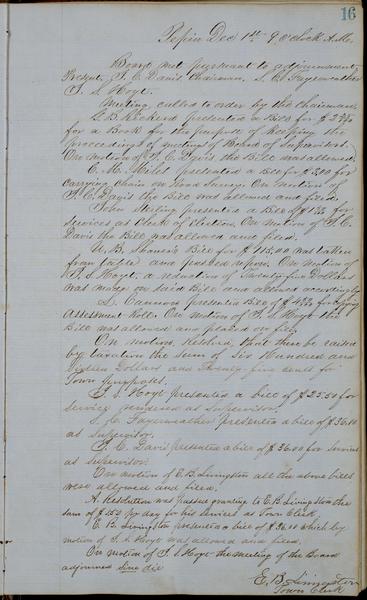 16
Pepin Dec 1st 9 o'clock A.M.
Board met pursuant to adjournment
Present, F. C. Davis Chairman, S. C. Fayerweather
F. S. Hoyt.
Meeting called to order by the Chairman
presented a Bill for
for a Book for the purpose of keeping the
proceedings of meetings of Board of Supervisors.
On motion of F. C. Davis the Bill was allowed.
E. M. Miles presented a Bill for $3.00 for
Carrying Chain on road Survey. On motion of
F. C. Davis the Bill was allowed and filed.
John Sterling presented a Bill of
Services as Clerk of Election. On motion of F. C.
Davis the Bill was allowed and filed.
Bill for $115,00 was taken
from table and passed upon. On motion of
F. S. Hoyt, a reduction of Twenty five Dollars
was made on said Bill and allowed accordingly
presented Bill of for Copying
Assessment Roll. On motion of F. S. Hoyt the
Bill was allowed and placed on file.
On motion, Resolved, that there be raised
by taxation the sum of Six Hundred and
Dollars and Twenty-five cents for
Town purposes.
F. S. Hoyt presented a bill of $25.50 for
Service rendered as Supervisor.
S. C. Fayerweather presented a bill of $36.00
as Supervisor.
F. C. Davis presented a bill of $36.00 for Services
as Supervisor.
On motion of E. B. Livingston all the above bills
were allowed and filed.
A Resolution was passed granting to E. B. Livingston the
sum of per day for his services as Town Clerk.
E. B. Livingston presented a bill of which by
motion of F. S. Hoyt was allowed and filed.
On motion of F. S. Hoyt the meeting of the Board
adjourned sine die
E. B. Livingston
Town Clerk